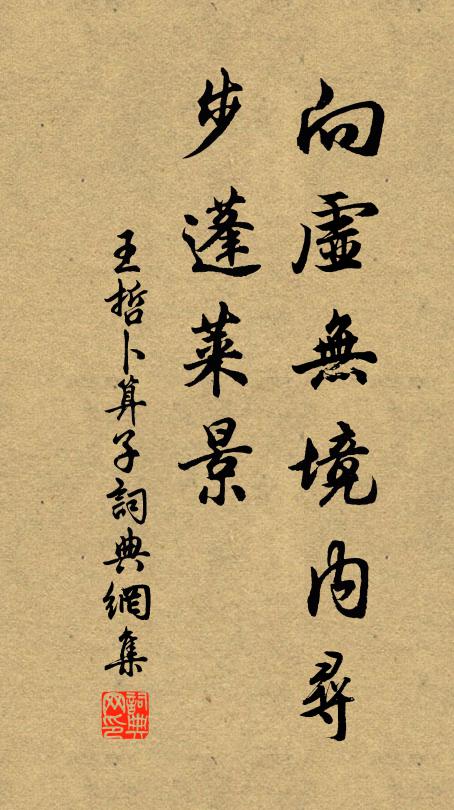 向虛無境內尋
步蓬萊景
王哲卜算子詞典網集
詞典
网印